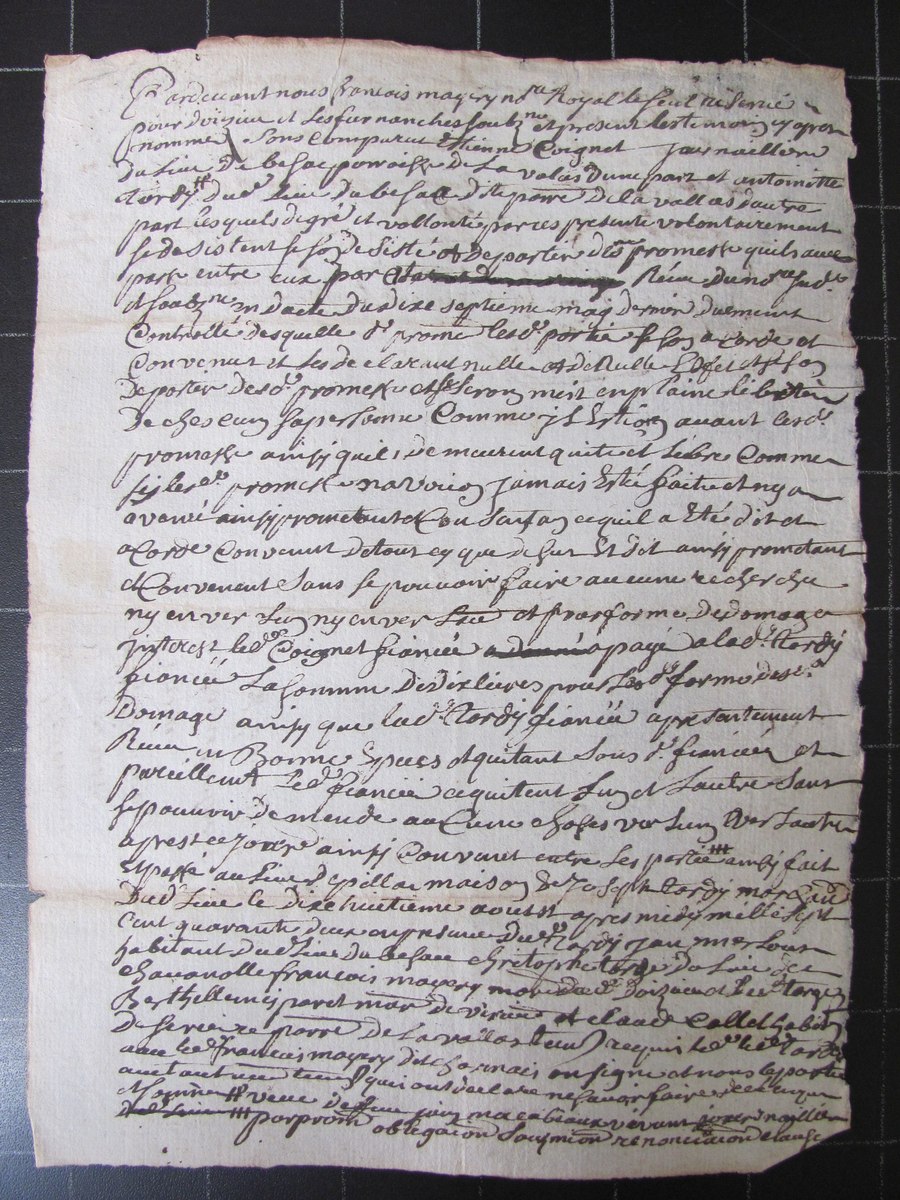 Pardevant nous francois mayery no.re Royal le seul reservé
pour doizieu et les farnanches soub.ne et present les temoins cy apres
nommé sons comparut Etienne Coignet journaillier
du lieu de besac parroisse de La valas d'une part et antoinette
tardy dud. Lieu du besac dite parre de la vallas d'autre
part lesquels de gré et vollonté par ces presente volontairement
se desistent se son desisté et departir des promesse quils
passe entre eux par Reçu du no.re
et soub.ne en date du dixe septieme may dernier duement
Controllé desquelle d. prome les d. partie se son acordé et
Convenut et les declarant nulle et de Nulle Effet et se son
departir des d. promesse et se seron mest en plaine liberté
De chescun sa personne Comme jl Estion avant les d.
promesse ainsy quils demeurent quite et Libre Comme
sy les d. promesse navoien jamais Esté faite et ny a
avenü ainsy promettant ce qu'il a Eté dit et
acordé Convenut de tout cy que dessus Et dit ainsy prometant
et Convenent sans se pouvoir faire aucune recherche
ny enver Lun ny enver Lau et par forme de domage
jnterest led. Coignet fiancée a payé a lad. tardy
fiancée La somme de dix livres pour les d. forme des d.
Domage ainsy que lad. tardy fiancée a presentement
Reçu en Bonne Espces et quitant sons d. fiancée et
pareillem.t led. fiancée ce quitent Lun et Lautre Sans
se pouvoir demende aucune choses ver Lun Ver Lautre
apres ce jour ainsy Convenut entre les partie ainsy fait
Et passé au Lieu depillac maison de joseph tardy marchand
Dud. Lieu le dixe huetieme aoust apres midy mille sept
Cent quarante deux en presence dud. tardy jan merlous
habitant dud. Lieu du besac christophe tardy du lieu de
chavanolle francois mayery mar. dud. doizieu et led. tardy
Berthellemy paret mar. de virieu et claude Collet habit.
De parre De La vallas requis led. led. tardy
avec led. francois mayery dit charmais on signé et nous les partie
qui ont declaré ne savoir faire de ce enquis
et sommé # veue de jean vivant journaillier
### par prom obligation soumion renonciation clause